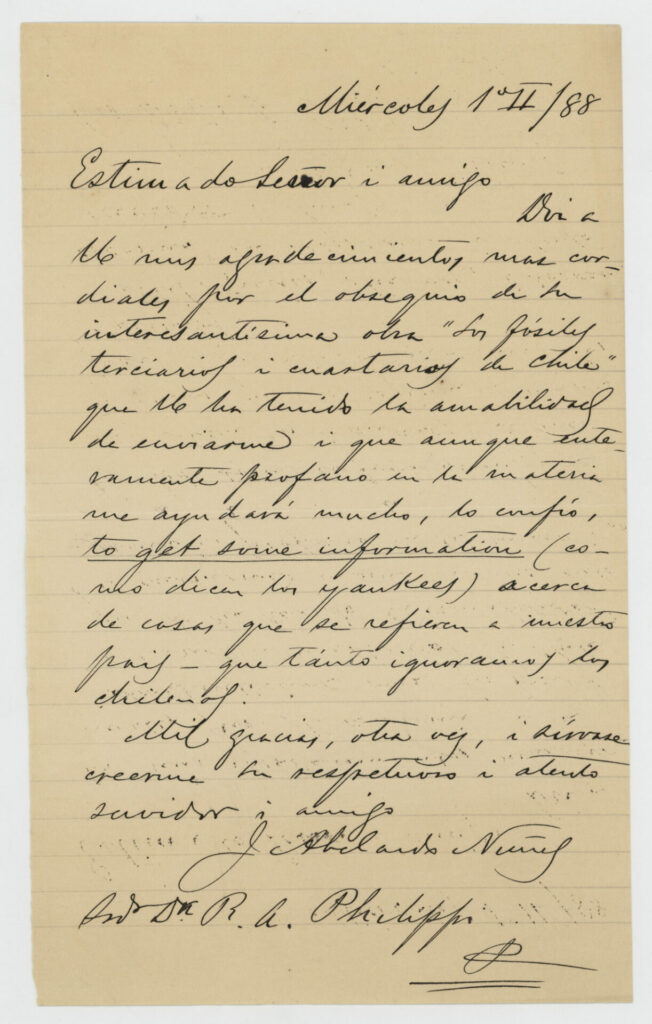 Miércoles 1º II/88
Estimado Señor i amigo
Doi a
U mis agradecimientos mas cor-
diales por el obsequio de su
interesantísima obra "Los fósiles
terciarios i cuartarios de Chile"
que U ha tenido la amabilidad
de enviarme i que aunque ente-
ramente profano en la materia
me ayudará mucho, lo confío,
to get some information (co-
mo dicen los yankees) acerca
de cosas que se refieren a nuestro
pais – que tánto ignoramos los
chilenos.
Mil gracias, otra vez, i sírvase
creerme su respetuoso i atento
servidor i amigo
J Abelardo Nuñez
Sr Dr R. A. Philippi
P